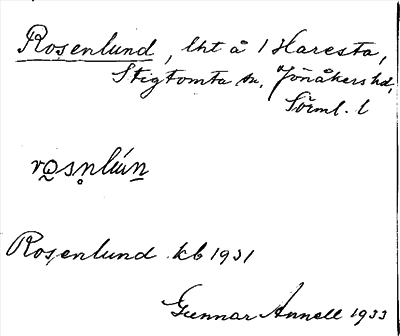 Rosenlund, lht å 1 Haresta,
Stigtomta sn, Jönåkers hd,
Sörml. l
Rosenlund kb 1931
Gunnar Annell 1933